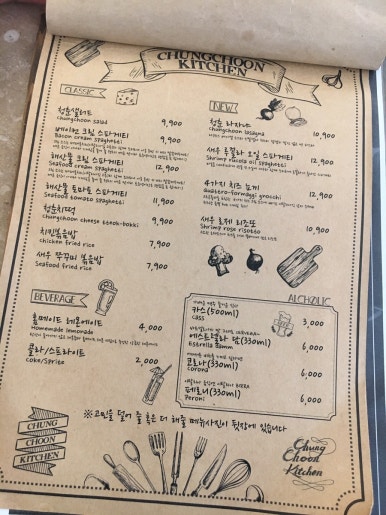 CHUNGCHOON
KITCHEN
CLASSIC
청춘샐러드
chungchoon salad 9,900
베이컨 크림 스파게티
Bacon cream spaghetti 9,900
해산물 크림 스파게티
Seafood cream spaghetti 12,900
해산물 토마토 스파게티
Seafood tomato spaghetti 11,900
청춘치떡
chungchoon cheese tteok-bokki 9,900
치킨볶음밥
chicken fried rice 7,900
새우 쭈꾸미 볶음밥
Seafood fried rice 7,900
NEW
청춘 라자냐
chungchoon lasagna 10,900
새우 루꼴라 오일 스파게티
Shrimp rucola oil spaghetti 12,900
4가지 치즈 뇨끼
quattro-formaggi gnocchi 12,900
새우 로제 리조또
Shrimp rose risotto 10,900
BEVERAGE
홈메이드 레몬에이드
Homemade lemonade 4,000
콜라/스프라이트
coke/Sprite 2,000
ALCHOLIC
카스(500ml)
cass 3,000
에스트렐라 담(330ml)
Estrella Damm 6,000
코로나(330ml)
corona 6,000
페로니(330ml)
Peroni 6,000
※고민을 덜어 줄 혹은 더 해줄 메뉴사진이 뒷장에 있습니다
CHUNG
CHOON
KITCHEN
Chung
Choon
Kitchen